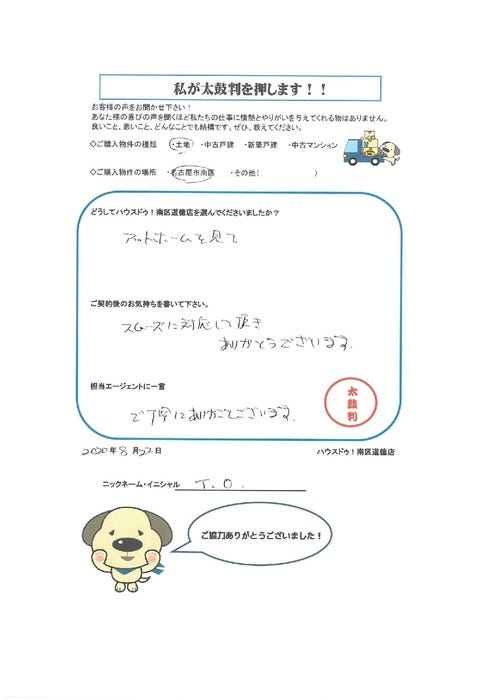 私が太鼓判を押します！！
お客様の声をお聞かせ下さい！
あなた様の喜びの声を聞くほど私たちの仕事に情熱とやりがいを与えてくれる物はありません。
良いこと、悪いこと、どんなことでも結構です。ぜひ、教えてください。
◇ご購入物件の種類 ・土地 ・中古戸建 ・新築戸建 ・中古マンション
◇ご購入物件の場所 ・名古屋市南区 ・その他( )
どうしてハウスドゥ！南区道徳店を選んでくださいましたか？
アットホームを見て
ご契約後のお気持ちを書いて下さい。
スムーズに対応して頂き
ありがとうございます.
担当エージェントに一言
ご丁寧にありがとうございます.
太鼓判
2020年8月22日
ハウスドゥ！南区道徳店
ニックネーム・イニシャル T.O.
ご協力ありがとうございました！